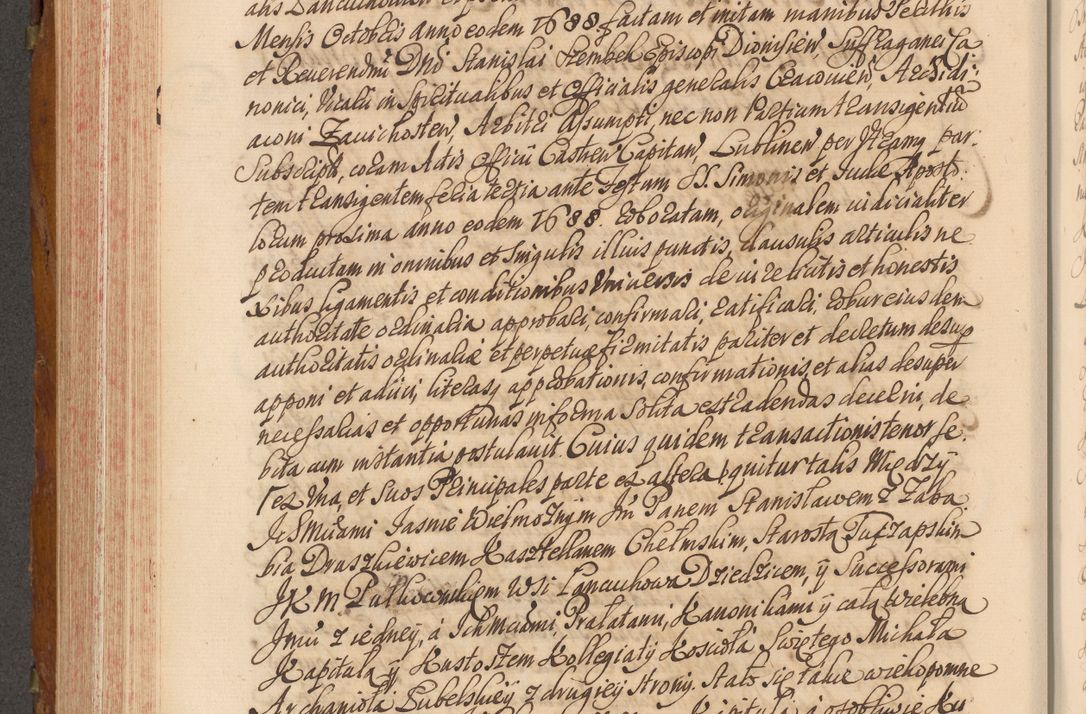 Mensis Octobris Anno eodem 1688 factam et initam manibusq
et Reverendmi Dni Stanislai Szembek Episcopi Dionisien, Suffraganei Ca
nonici, Vicarii in Spiritualibus et Officialis generalis Cracovien, Archidi:
aconi Zavichosten, Arbitri Assumpti, nec non Partium transigentiu
Subscript, coram Actis Officii Castren Capitan, Lublinen per Itramq par:
tem transigentem feria tertia ante Festum SS. Simonis et Judae Aposto:
lorum proxima Anno eodem 1688. roboratam, originalem iudicialiter
productam in omnibus et singulis illius punctis, clausulis articulis ne
xibus ligamentis et conditionibus Universis de iure licitis et honestis
authoritate ordinaria approbari, confirmari, ratificari, robur eius dem
authoritatis ordinariae et perpetuae firmitatis pariter et decretum desup
apponi et adiici, literasq approbationis, confirmationis, et alias desuper
necessarias et opportunas in forma solita extradendas decerni, de
bita cum instantia postulavit. Cuius quidem transactionis tenor se:
res Una, et Suos Principales parte ex altera, sequitur talis Między
Ichmciami Jasnie Wielmożnym Jm Panem Stanisławem z Zaba
bia Draszkiewicem Kasztellanem Chełmskim, Starostą Tuszapskim
JKM Pułkownikiem Wsi Łancuchowa Dziedzicem, y Successorami
Jmci z iedney, á Ichmciami, Prałatami, Kanonikami y całą wielebną
Kapitułą y Kustoszem Kollegiaty Kosciołá Swiętego Michała
Archanioła Lubelskiey z drugiey strony. Stało się takie wiekopomne